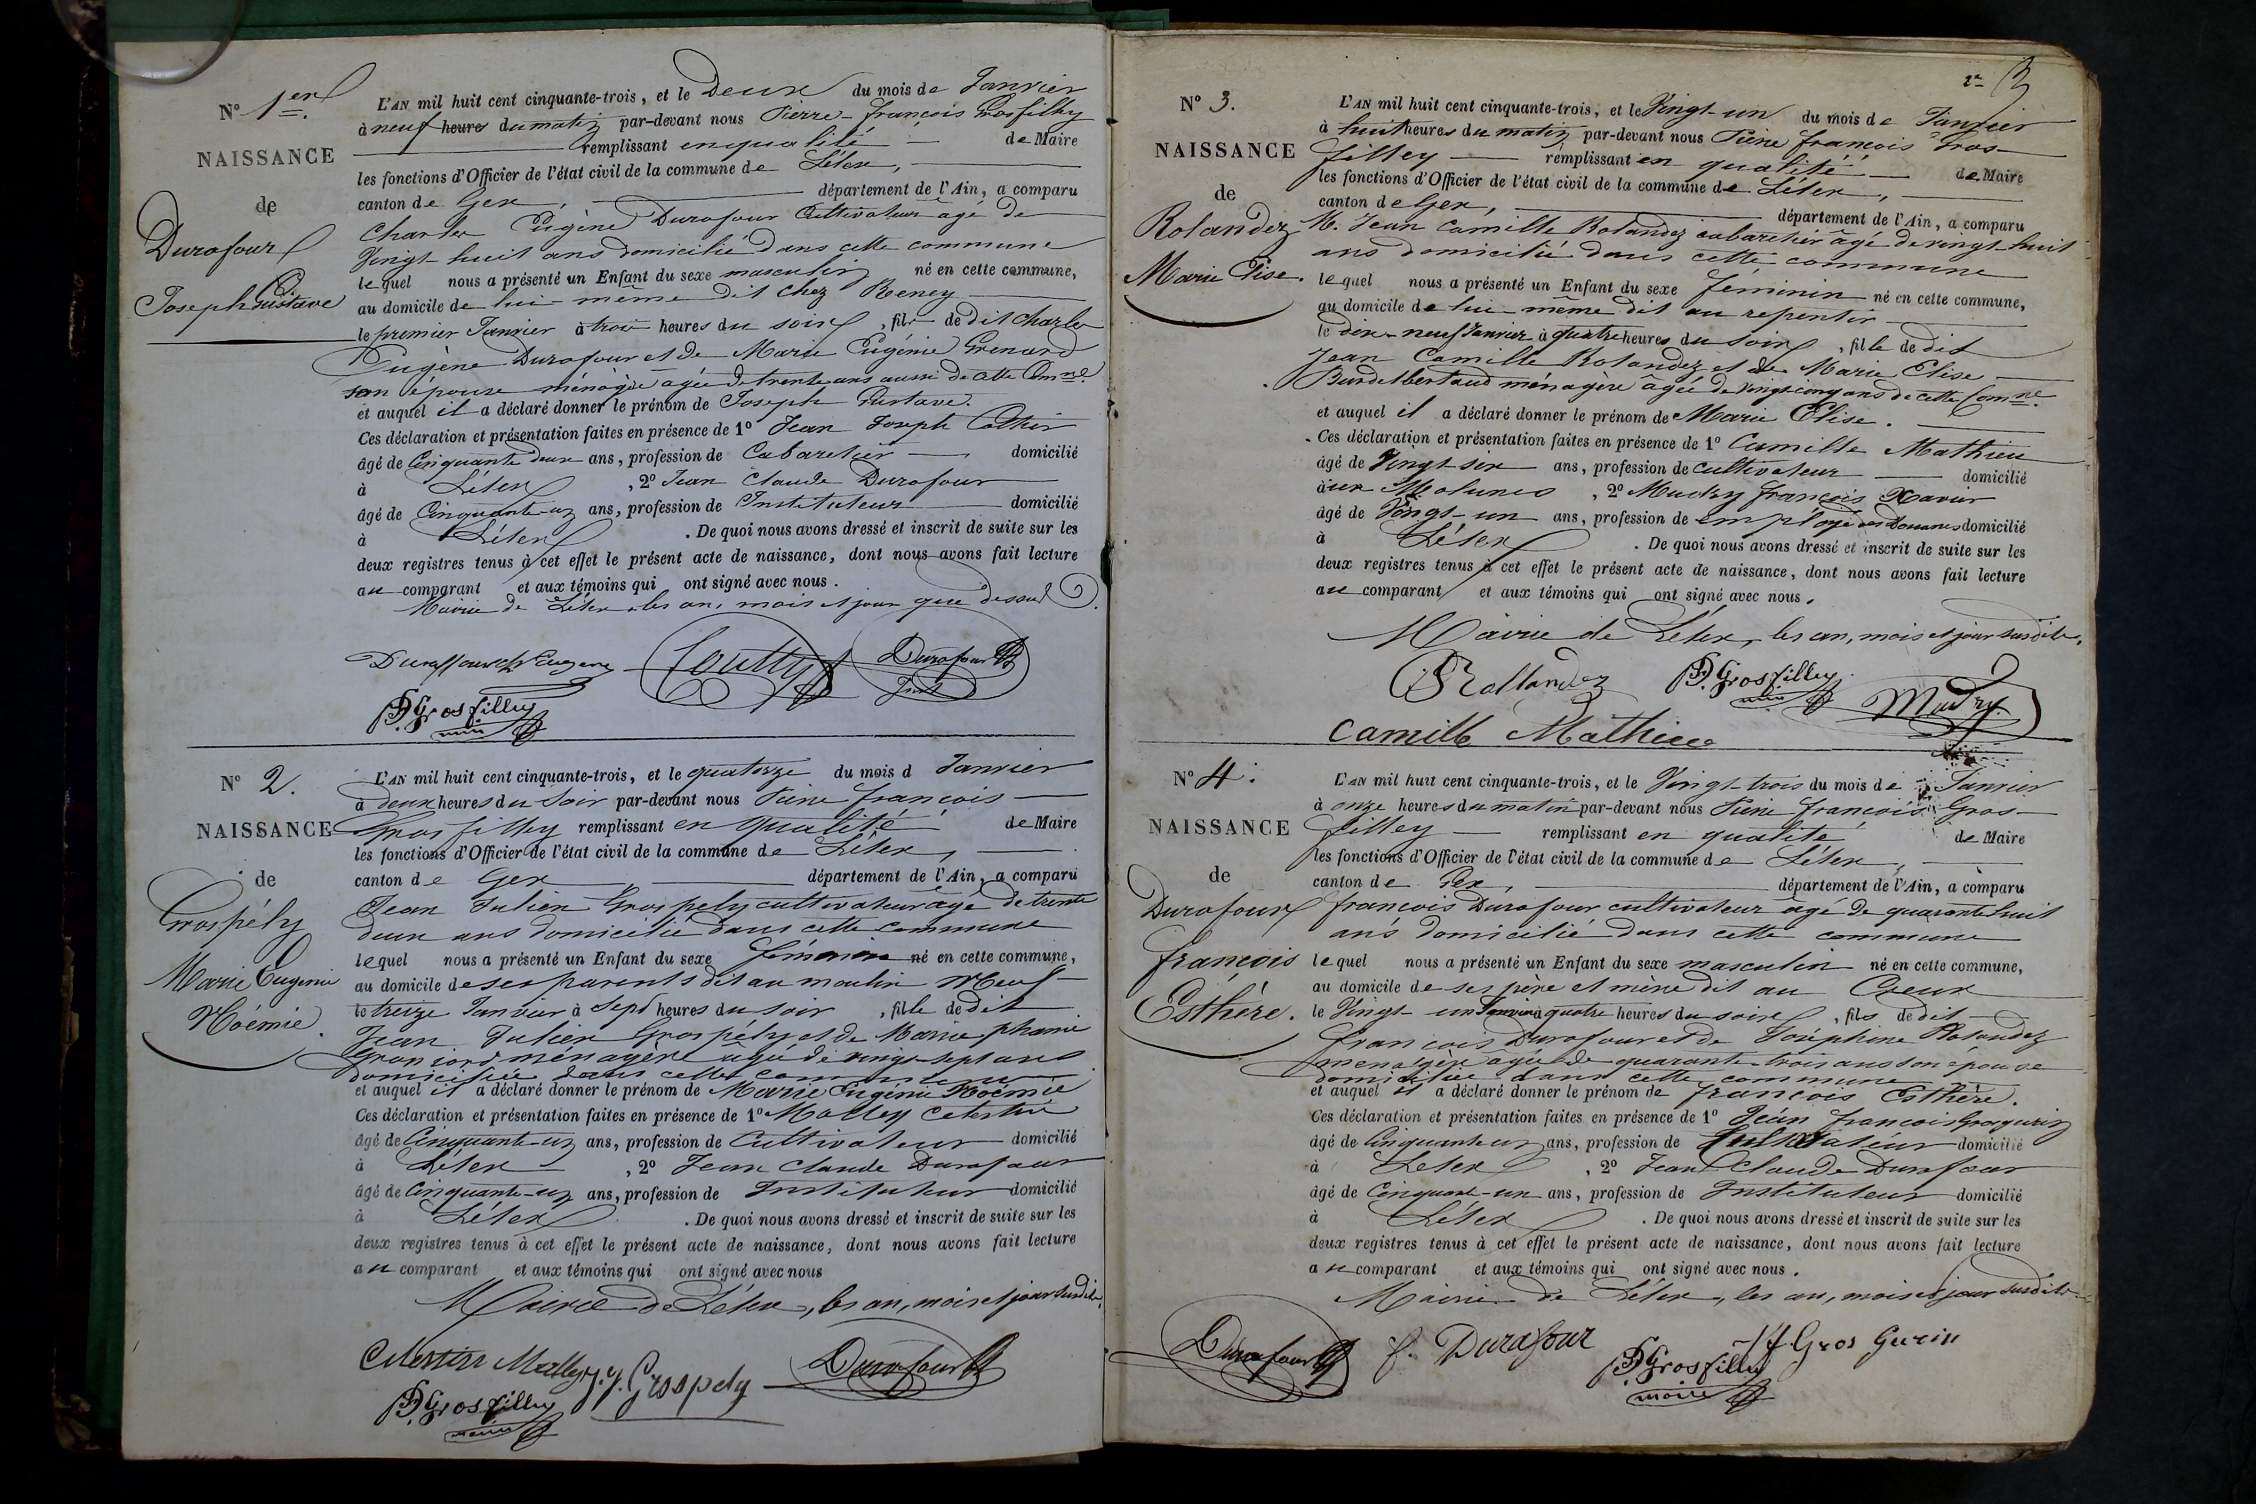 N° 1er.
NAISSANCE
de
Durafour
Joseph Gustave
L'AN mil huit cent cinquante-trois, et le Deux du mois de Janvier
à neuf heures du matin par-devant nous Pierre-françois Grosfilley
remplissant en qualité de Maire
les fonctions d'Officier de l'état civil de la commune de Lélex,
canton de Gex, département de l'Ain, a comparu
Charles Eugène Durafour Cultivateur âgé de
Vingt-huit ans domicilié dans cette commune
lequel nous a présenté un Enfant du sexe masculin né en cette commune,
au domicile de lui-même dit chez Reney
le premier Janvier à trois heures du soir, fils de dit Charles
Eugène Durafour et de Marie Eugénie Grenard
son épouse ménagère agée de trente ans aussi de cette Comne.
et auquel il a déclaré donner le prénom de Joseph Gustave.
Ces déclaration et présentation faites en présence de 1° Jean Joseph
âgé de Cinquante deux ans, profession de Cabaretier domicilié
à Lélex, 2° Jean Claude Durafour
âgé de Cinquante-un ans, profession de Instituteur domicilié
à Lélex. De quoi nous avons dressé et inscrit de suite sur les
deux registres tenus à cet effet le présent acte de naissance, dont nous avons fait lecture
au comparant et aux témoins qui ont signé avec nous.
Mairie de Lélex, les an, mois et jour que dessus.
Durafour Eugene Durafour
Inst
Grosfilley
N° 2.
NAISSANCE
de
Grospély
Marie Eugenie
Noémie.
L'AN mil huit cent cinquante-trois, et le quatorze du mois d Janvier
à deux heures du Soir par-devant nous Pierre françois
Grosfilley remplissant en qualité de Maire
les fonctions d'Officier de l'état civil de la commune de Lélex,
canton de Gex département de l'Ain, a comparu
Jean Julien Grospely cultivateur âgé de trente
deux ans domicilié dans cette commune
lequel nous a présenté un Enfant du sexe féminin né en cette commune,
au domicile de ses parents dit au moulin Neuf
le treize Janvier à Sept heures du soir, fille de dit
Jean Julien Grospély et de Marie phanie
ménagère âgée de vingt sept ans
domiciliée dans cette commune
et auquel il a déclaré donner le prénom de Marie Eugénie Noémie
Ces déclaration et présentation faites en présence de 1° Molley Celestin
âgé de Cinquante-un ans, profession de Cultivateur domicilié
à Lélex, 2° Jean Claude Durafour
âgé de Cinquante-un ans, profession de Instituteur domicilié
à Lélex. De quoi nous avons dressé et inscrit de suite sur les
deux registres tenus à cet effet le présent acte de naissance, dont nous avons fait lecture
au comparant et aux témoins qui ont signé avec nous
Mairie de Lélex, les an, mois et jour susdits.
Celestin Molley J. J. Grospely Durafour
Grosfilley
N° 3.
NAISSANCE
de
Rolandez
Marie Elise.
L'AN mil huit cent cinquante-trois, et le Vingt-un du mois de Janvier
à huit heures du matin par-devant nous Pierre françois Gros-
filley remplissant en qualité de Maire
les fonctions d'Officier de l'état civil de la commune de Lélex,
canton de Gex, département de l'Ain, a comparu
M. Jean Camille Rolandez cabaretier âgé de vingt huit
ans domicilié dans cette commune
lequel nous a présenté un Enfant du sexe féminin né en cette commune,
au domicile de lui-même dit au repentir
le dix-neuf Janvier à quatre heures du soir, fille de dit
Jean Camille Rolandez et de Marie Elise
ménagère âgée de vingt cinq ans de cette Comne.
et auquel il a déclaré donner le prénom de Marie Elise.
Ces déclaration et présentation faites en présence de 1° Camille Mathieu
âgé de Vingt-six ans, profession de cultivateur domicilié
à aux Molunes, 2° Mudry françois Xavier
âgé de Vingt-un ans, profession de employé des Douanes domicilié
à Lélex. De quoi nous avons dressé et inscrit de suite sur les
deux registres tenus à cet effet le présent acte de naissance, dont nous avons fait lecture
au comparant et aux témoins qui ont signé avec nous.
Mairie de Lélex, les an, mois et jour susdits.
Rollandez Grosfilley Mudry
Camille Mathieu
N° 4.
NAISSANCE
de
Durafour
françois
Esthère.
L'AN mil huit cent cinquante-trois, et le Vingt-trois du mois de Janvier
à onze heures du matin par-devant nous Pierre françois Gros-
filley remplissant en qualité de Maire
les fonctions d'Officier de l'état civil de la commune de Lélex,
canton de Gex, département de l'Ain, a comparu
françois Durafour cultivateur âgé de quarante huit
ans domicilié dans cette commune
lequel nous a présenté un Enfant du sexe masculin né en cette commune,
au domicile de ses père et mère dit au Creux
le Vingt-un Janvier à quatre heures du soir, fils de dit
françois Durafour et de Joséphine Rolandez
menagère agée de quarante-trois ans son épouse
domiciliée dans cette commune
et auquel il a déclaré donner le prénom de françois Esthère.
Ces déclaration et présentation faites en présence de 1° Jean françois Grosgurin
âgé de Cinquante un ans, profession de Cultivateur domicilié
à Lelex, 2° Jean Claude Durafour
âgé de Cinquant-un ans, profession de Instituteur domicilié
à Lélex. De quoi nous avons dressé et inscrit de suite sur les
deux registres tenus à cet effet le présent acte de naissance, dont nous avons fait lecture
au comparant et aux témoins qui ont signé avec nous.
Mairie de Lélex, les an, mois et jour susdits
Durafour f. Durafour Grosfilley J f Gros Gurin
maire